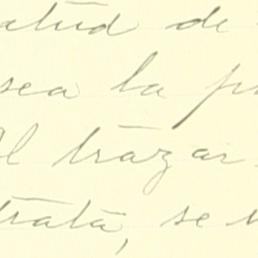 atud de
sea la p
al trazar
trata, se